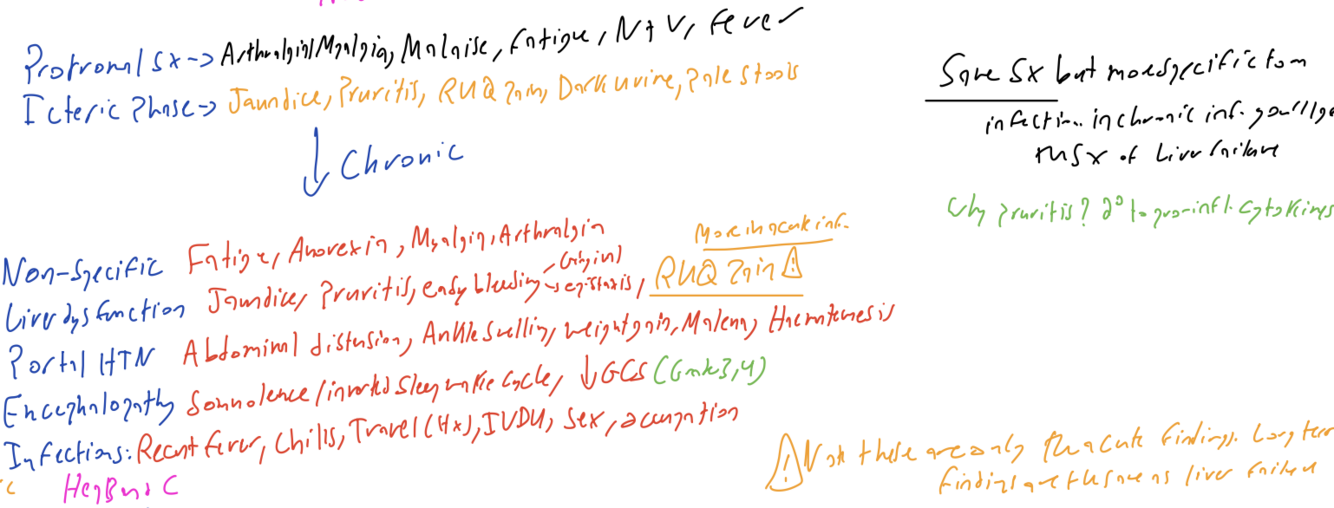 Protromal Sx -> Arthralgia/Myalgia, Malaise, Fatigue, N+V, Fever
Icteric Phase -> Jaundice, Pruritis, RUQ Pain, Dark urine, Pale stools
Chronic
Same Sx but more specific to
infection. in chronic inf. you'll ge
the Sx of Liver failure
Why pruritis? 2° to pro-infl. cytokines
More in acute inf.
Non-Specific Fatigue, Anorexia, Myalgia, Arthralgia
Liver dysfunction Jaundice, Pruritis, easy bleeding gingival epistaxis, RUQ Pain
Portal HTN Abdominal distension, Ankle swelling, weight gain, Malena, Haematemesis
Encephalopathy Somnolence/inverted sleep wake cycle, ↓GCS (Grade 3,4)
Infections: Recent fever, Chills, Travel (Hx), IVDU, Sex, occupation
Note these are only the acute findings. Long ter
findings are the same as liver failure
Hep B C